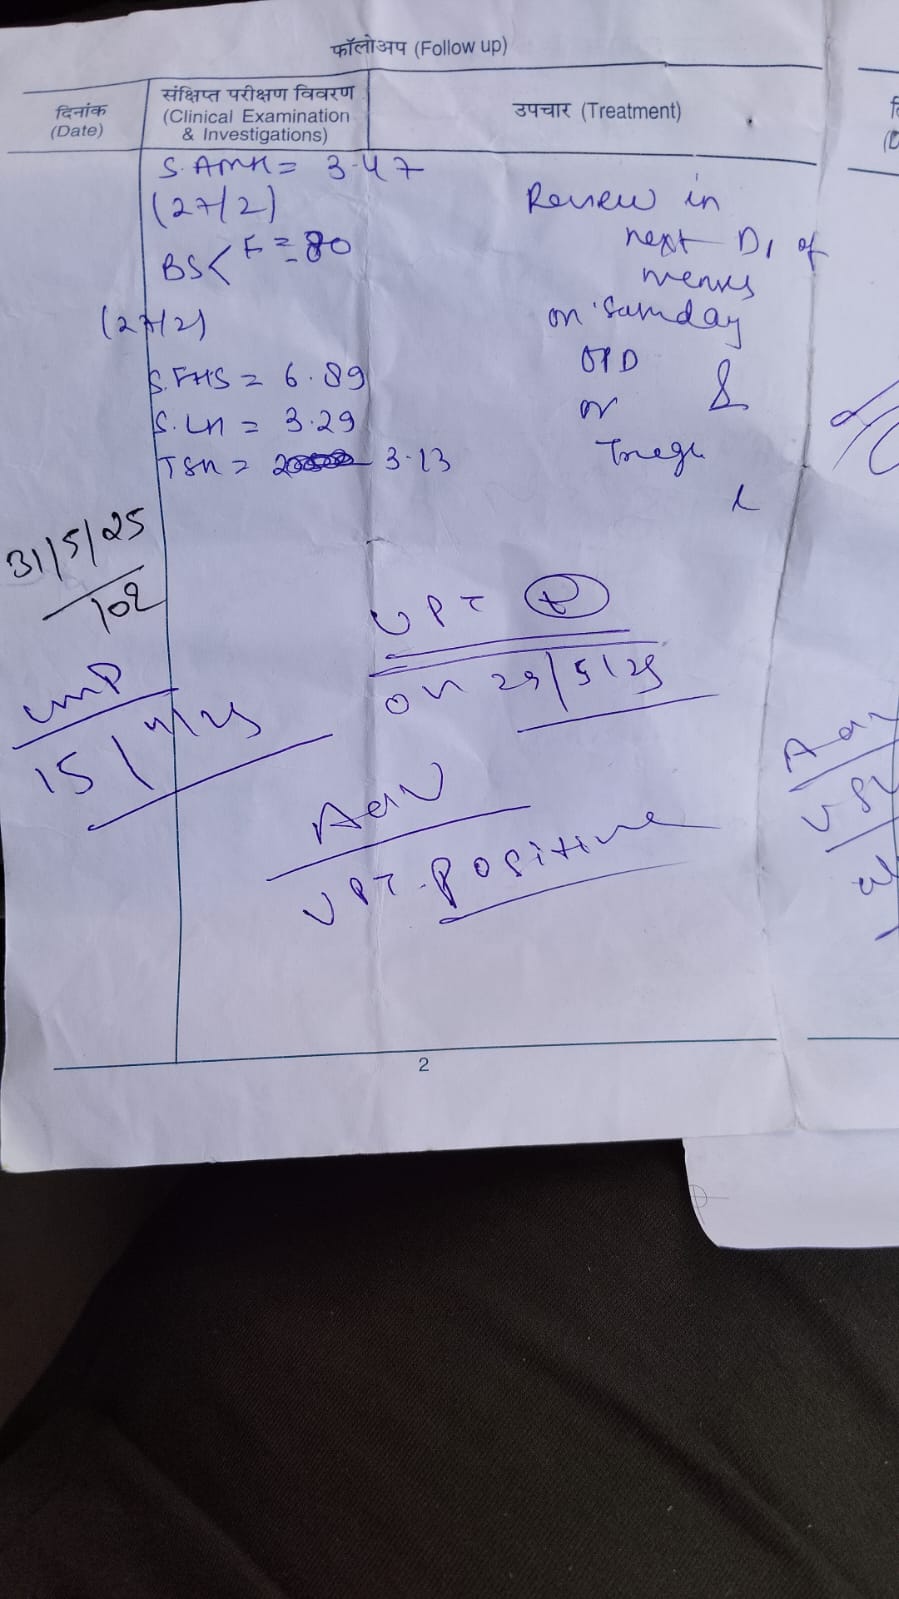 फॉलोअप (Follow up)
दिनांक
(Date)
संक्षिप्त परीक्षण विवरण
(Clinical Examination
& Investigations)
उपचार (Treatment)
S. AMH = 3.47
(27/2)
BS< F = 80
(27/2)
S. FHS = 6.89
S. LH = 3.29
TSH = 3.13
Review in
next D1 of
menses
on
OPD
or
31/5/25
102
LMP
15/4/25
UPT +
on 29/5/25
Adv
UPT. Positive
2
Adv